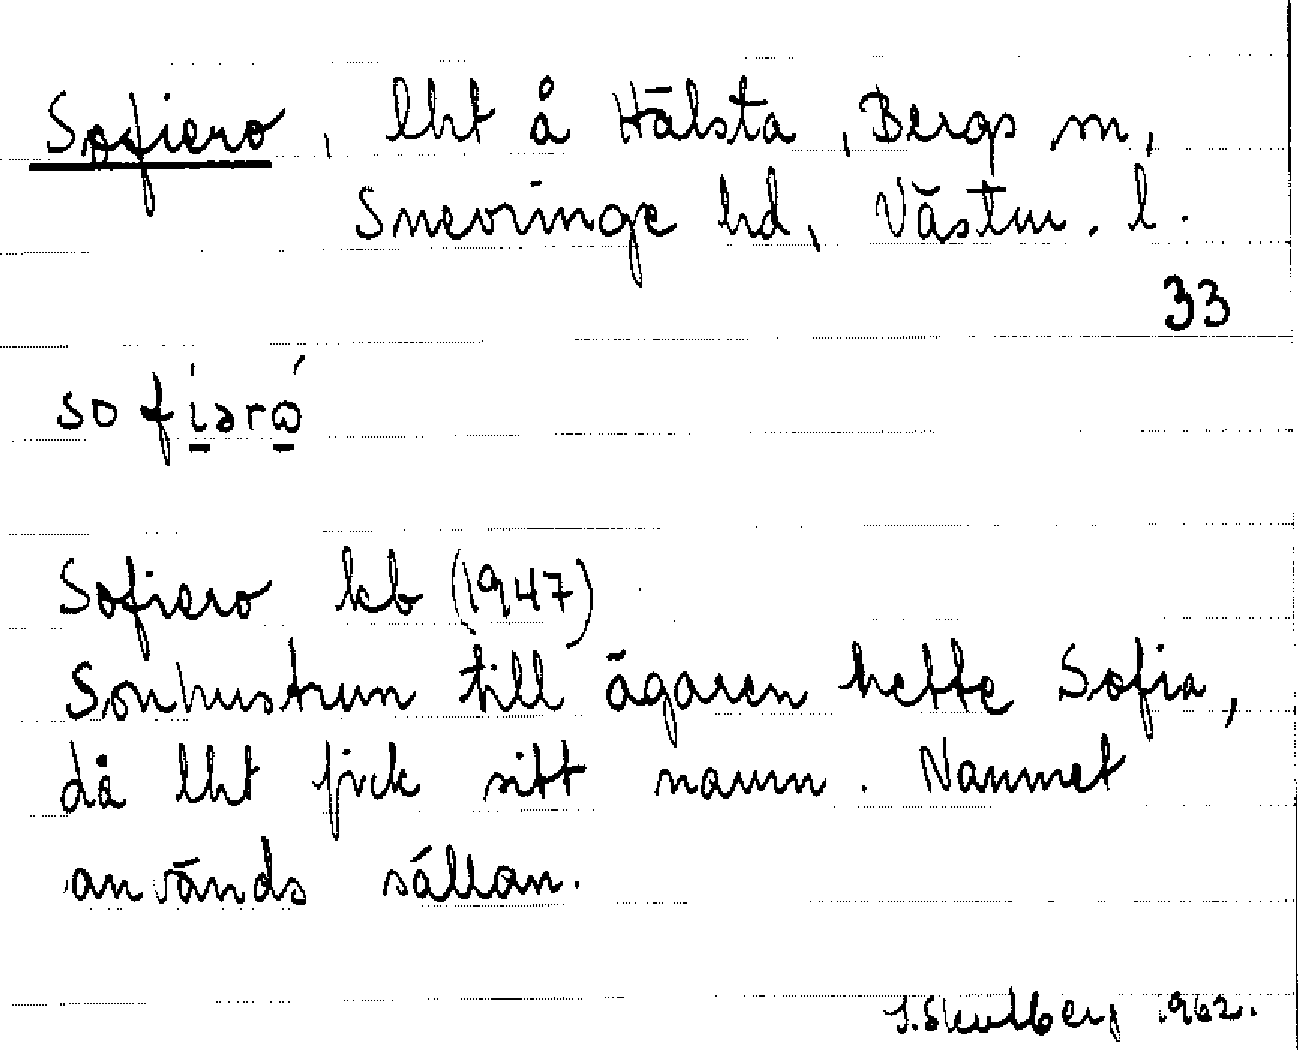 Sofiero, lht å Hälsta, Bergs sn,
Snevringe hd, Västm. l.
33
sofi̱ərω̱
Sofiero kb (1947)
Sonhustrun till ägaren hette Sofia,
då lht fick sitt namn. Namnet
används sällan.
1962.